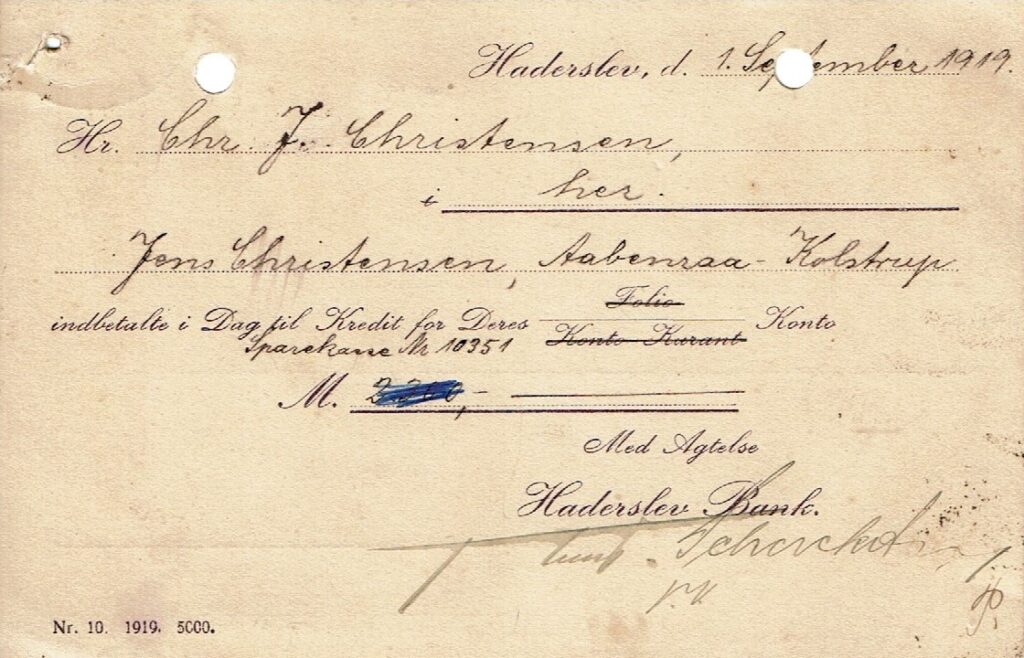 Haderslev, d. 1. September 1919.
Hr. Chr. J. Christensen,
i her.
Jens Christensen, Aabenraa - Kolstrup
Folio
indbetalte i Dag til Kredit for Deres Konto
Konto Kurant
Sparekasse Nr 10351
M.
Med Agtelse
Haderslev Bank.
Nr. 10. 1919. 5000.